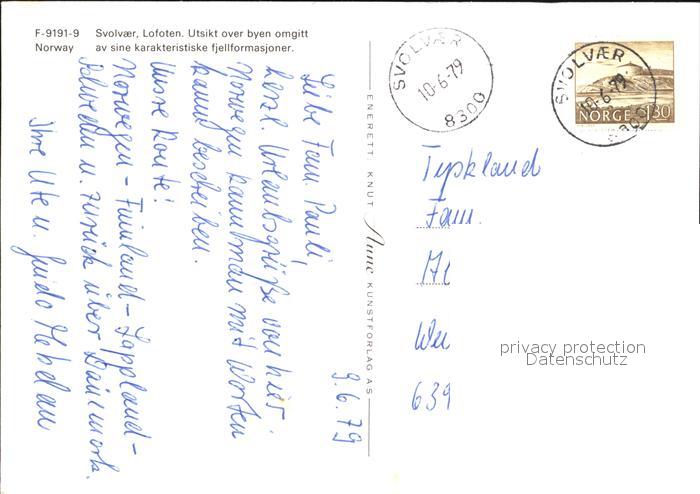 F-9191-9 Svolvær, Lofoten. Utsikt over byen omgitt
Norway av sine karakteristiske fjellformasjoner.
9.6.79
Liebe Fam. Pauli,
herzl. Urlaubsgrüße von hier.
Norwegen kann man mit Worten
kaum beschreiben.
Unsre Route:
Norwegen - Finnland - Lappland -
Schweden u. zurück über Dänemark.
Ihre Ute u. Guido
ENERETT KNUT Aune KUNSTFORLAG AS
SVOLVÆR
10-6-79
8300
SVOLVÆR
10-6-79
8300
NORGE 130
Tyskland
Fam.
639
privacy protection
Datenschutz